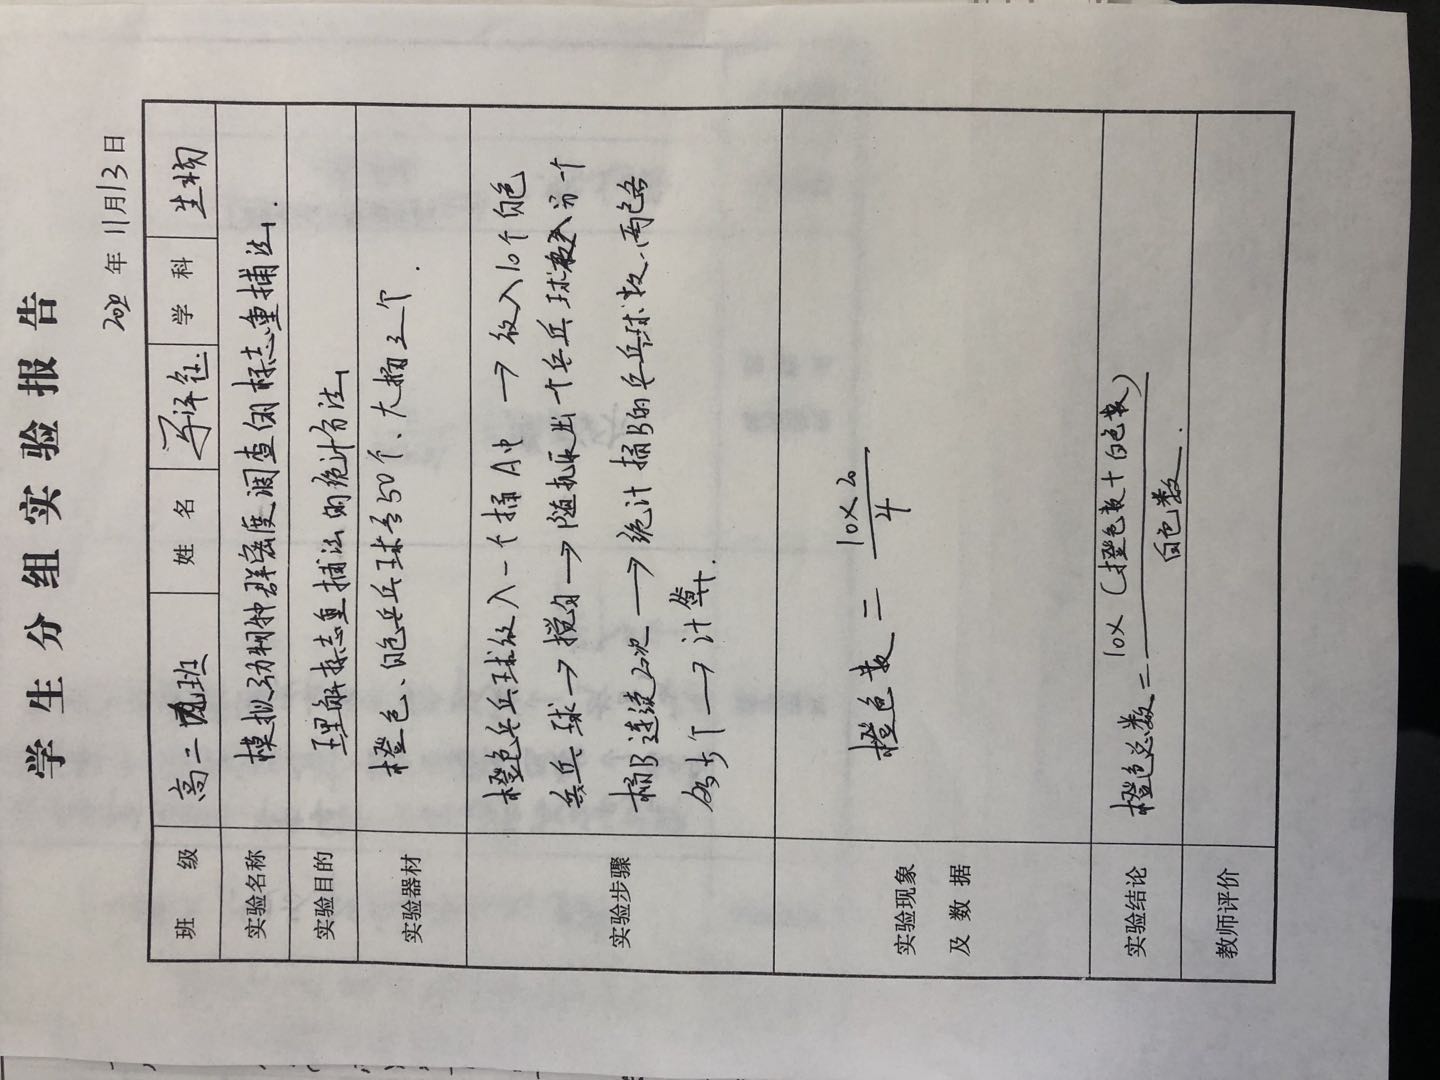 学生分组实验报告
年 11月13日
班 级 高二 班 姓 名 学 科 生物
实验名称 模拟动物种群密度调查的标志重捕法.
实验目的 理解标志重捕法的统计方法
实验器材 橙色、白色乒乓球各50个、大桶2个.
实验步骤 橙色乒乓球放入一个桶A中→放入10个白色
乒乓球→搅匀→随机取出一个乒乓球放入另一个
桶B连续20次→统计桶B的乒乓球数、两色各
多少个→计算.
实验现象
及 数 据
橙色数=10×20/4
实验结论 橙色总数=10×(橙色数+白色数)/白色数.
教师评价